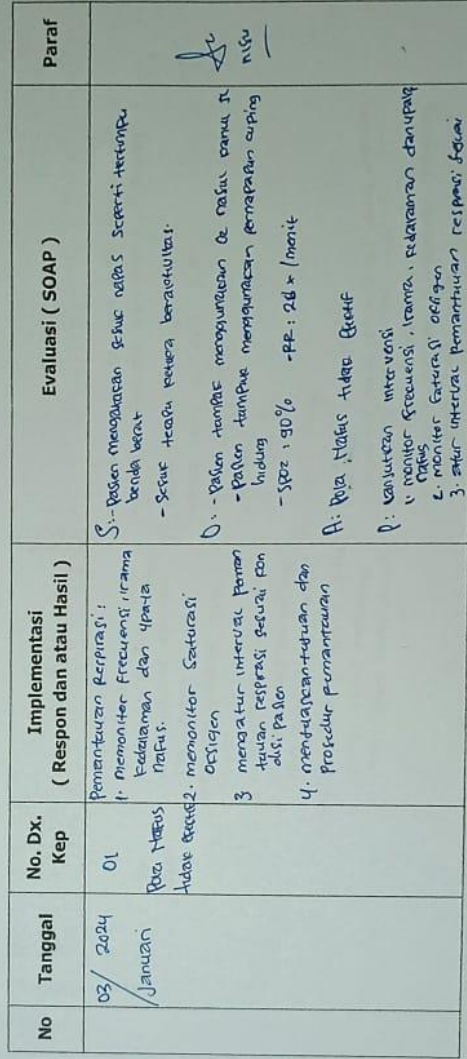 No
Tanggal
No. Dx.
Kep
Implementasi
( Respon dan atau Hasil )
Evaluasi ( SOAP )
Paraf
03/ 2024
Januari
01
Pola Nafas
tidak efektif
Pemantauan Respirasi :
1. memonitor Frecuensi, irama
Kedalaman dan upaya
nafus.
2. memonitor Saturasi
Oksigen
3 mengatur interval peman
tauan respirasi sesuai kon
disi pasien
4. menjelaskan tujuan dan
Prosedur pemantauan
S: - pasien mengatakan sesak napas seperti tertimpa
benda berat
- Sesak terasa ketika beraktivitas.
O: - Pasien tampak menggunakan O2 nasal kanul 5L
- Pasien tampak menggunakan pernapasan cuping
hidung
- SPO2 : 90% - RR : 28 x /menit
A: Pola Nafas tidak efektif
P: Lanjutkan intervensi
1. monitor frecuensi, irama, kedalaman dan upaya
nafas
2. monitor saturasi oksigen
3. atur interval pemantauan respirasi sesuai